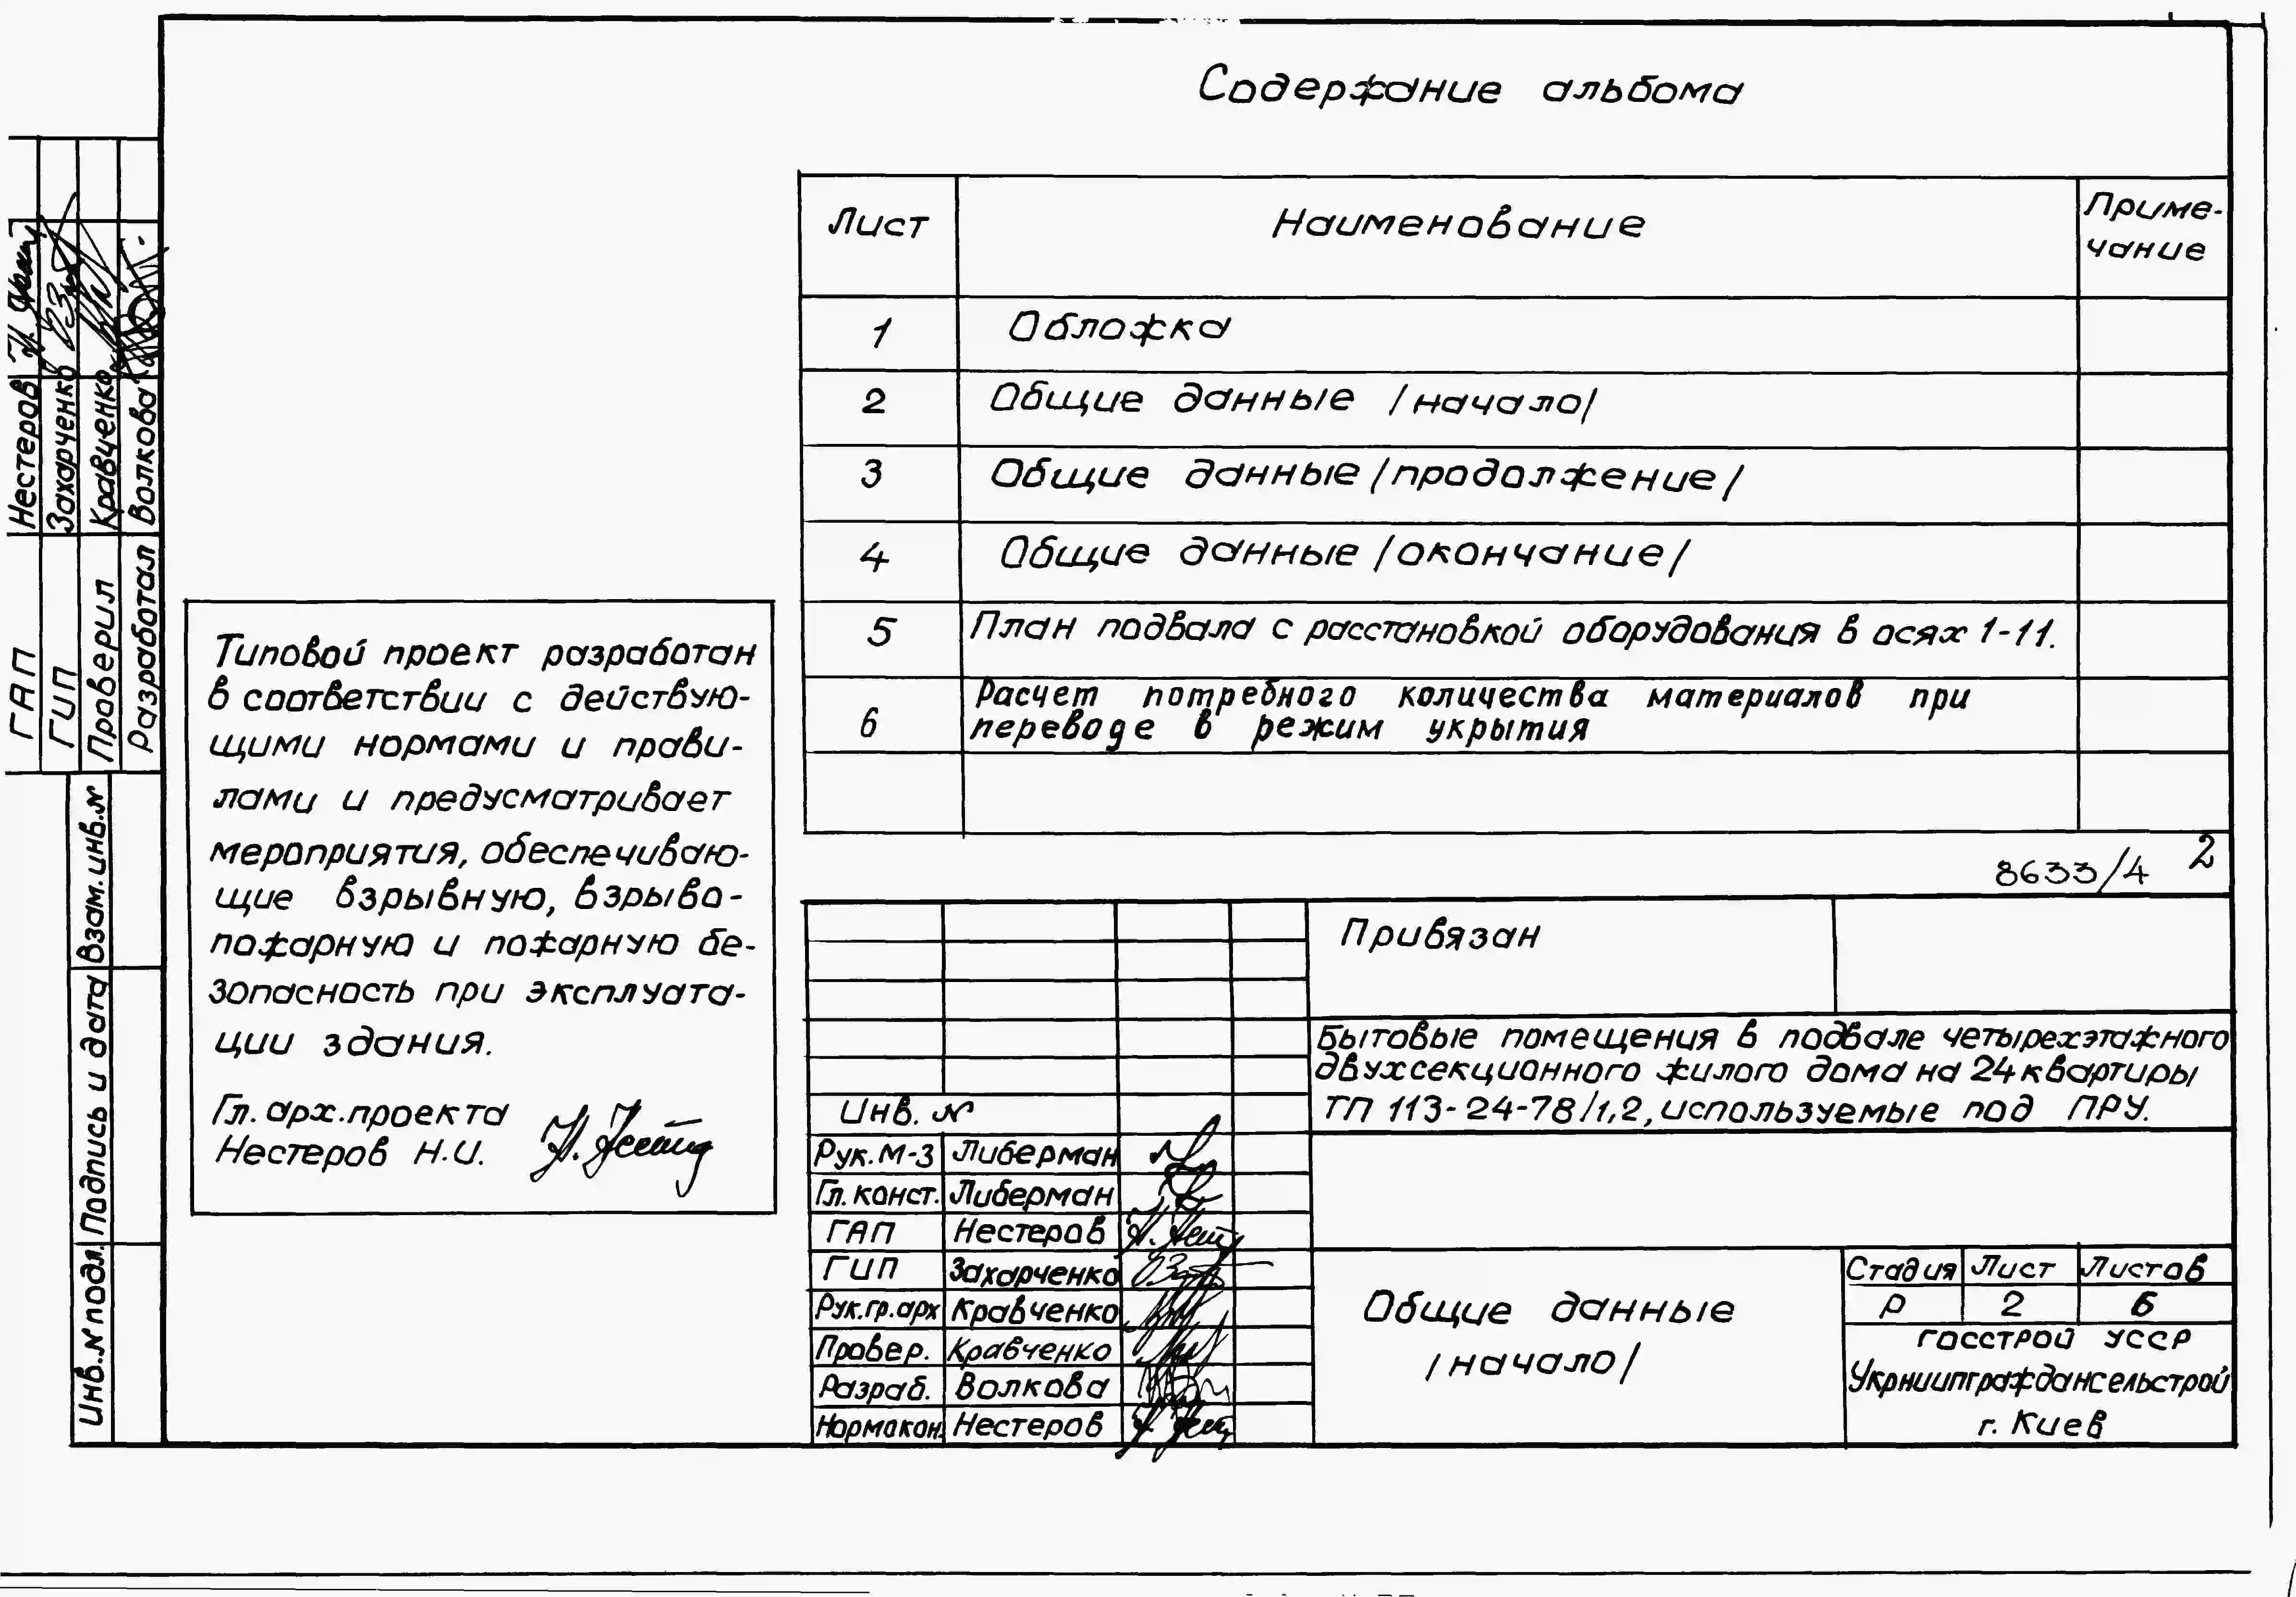 Содержание альбома
Лист Наименование Приме-
чание
1 Обложка
2 Общие данные /начало/
3 Общие данные /продолжение/
4 Общие данные /окончание/
5 План подвала с расстановкой оборудования в осях 1-11.
6 Расчет потребного количества материалов при
переводе в режим укрытия
8633/4 2
Типовой проект разработан
в соответствии с действую-
щими нормами и прави-
лами и предусматривает
мероприятия, обеспечиваю-
щие взрывную, взрыво-
пожарную и пожарную бе-
зопасность при эксплуата-
ции здания.
Гл. арх. проекта
Нестеров Н.И.
ГАП Нестеров
ГИП Захарченко
Проверил Кравченко
Разработал Волкова
Взам. инв. №
Подпись и дата
Инв. № подл.
Привязан
Инв. №
Бытовые помещения в подвале четырехэтажного
двухсекционного жилого дома на 24 квартиры
ТП 113-24-78/1,2, используемые под ПРУ.
Рук. М-3 Либерман
Гл. конст. Либерман
ГАП Нестеров
ГИП Захарченко
Рук. гр. арх Кравченко
Провер. Кравченко
Разраб. Волкова
Нормокон. Нестеров
Общие данные
/начало/
Стадия Лист Листов
Р 2 6
госстрой УССР
Укрниипграждансельстрой
г. Киев